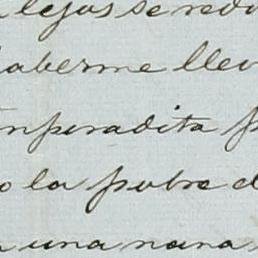 lejos se redu
haberme llev
mperadita p
o la pobre d
a una nana